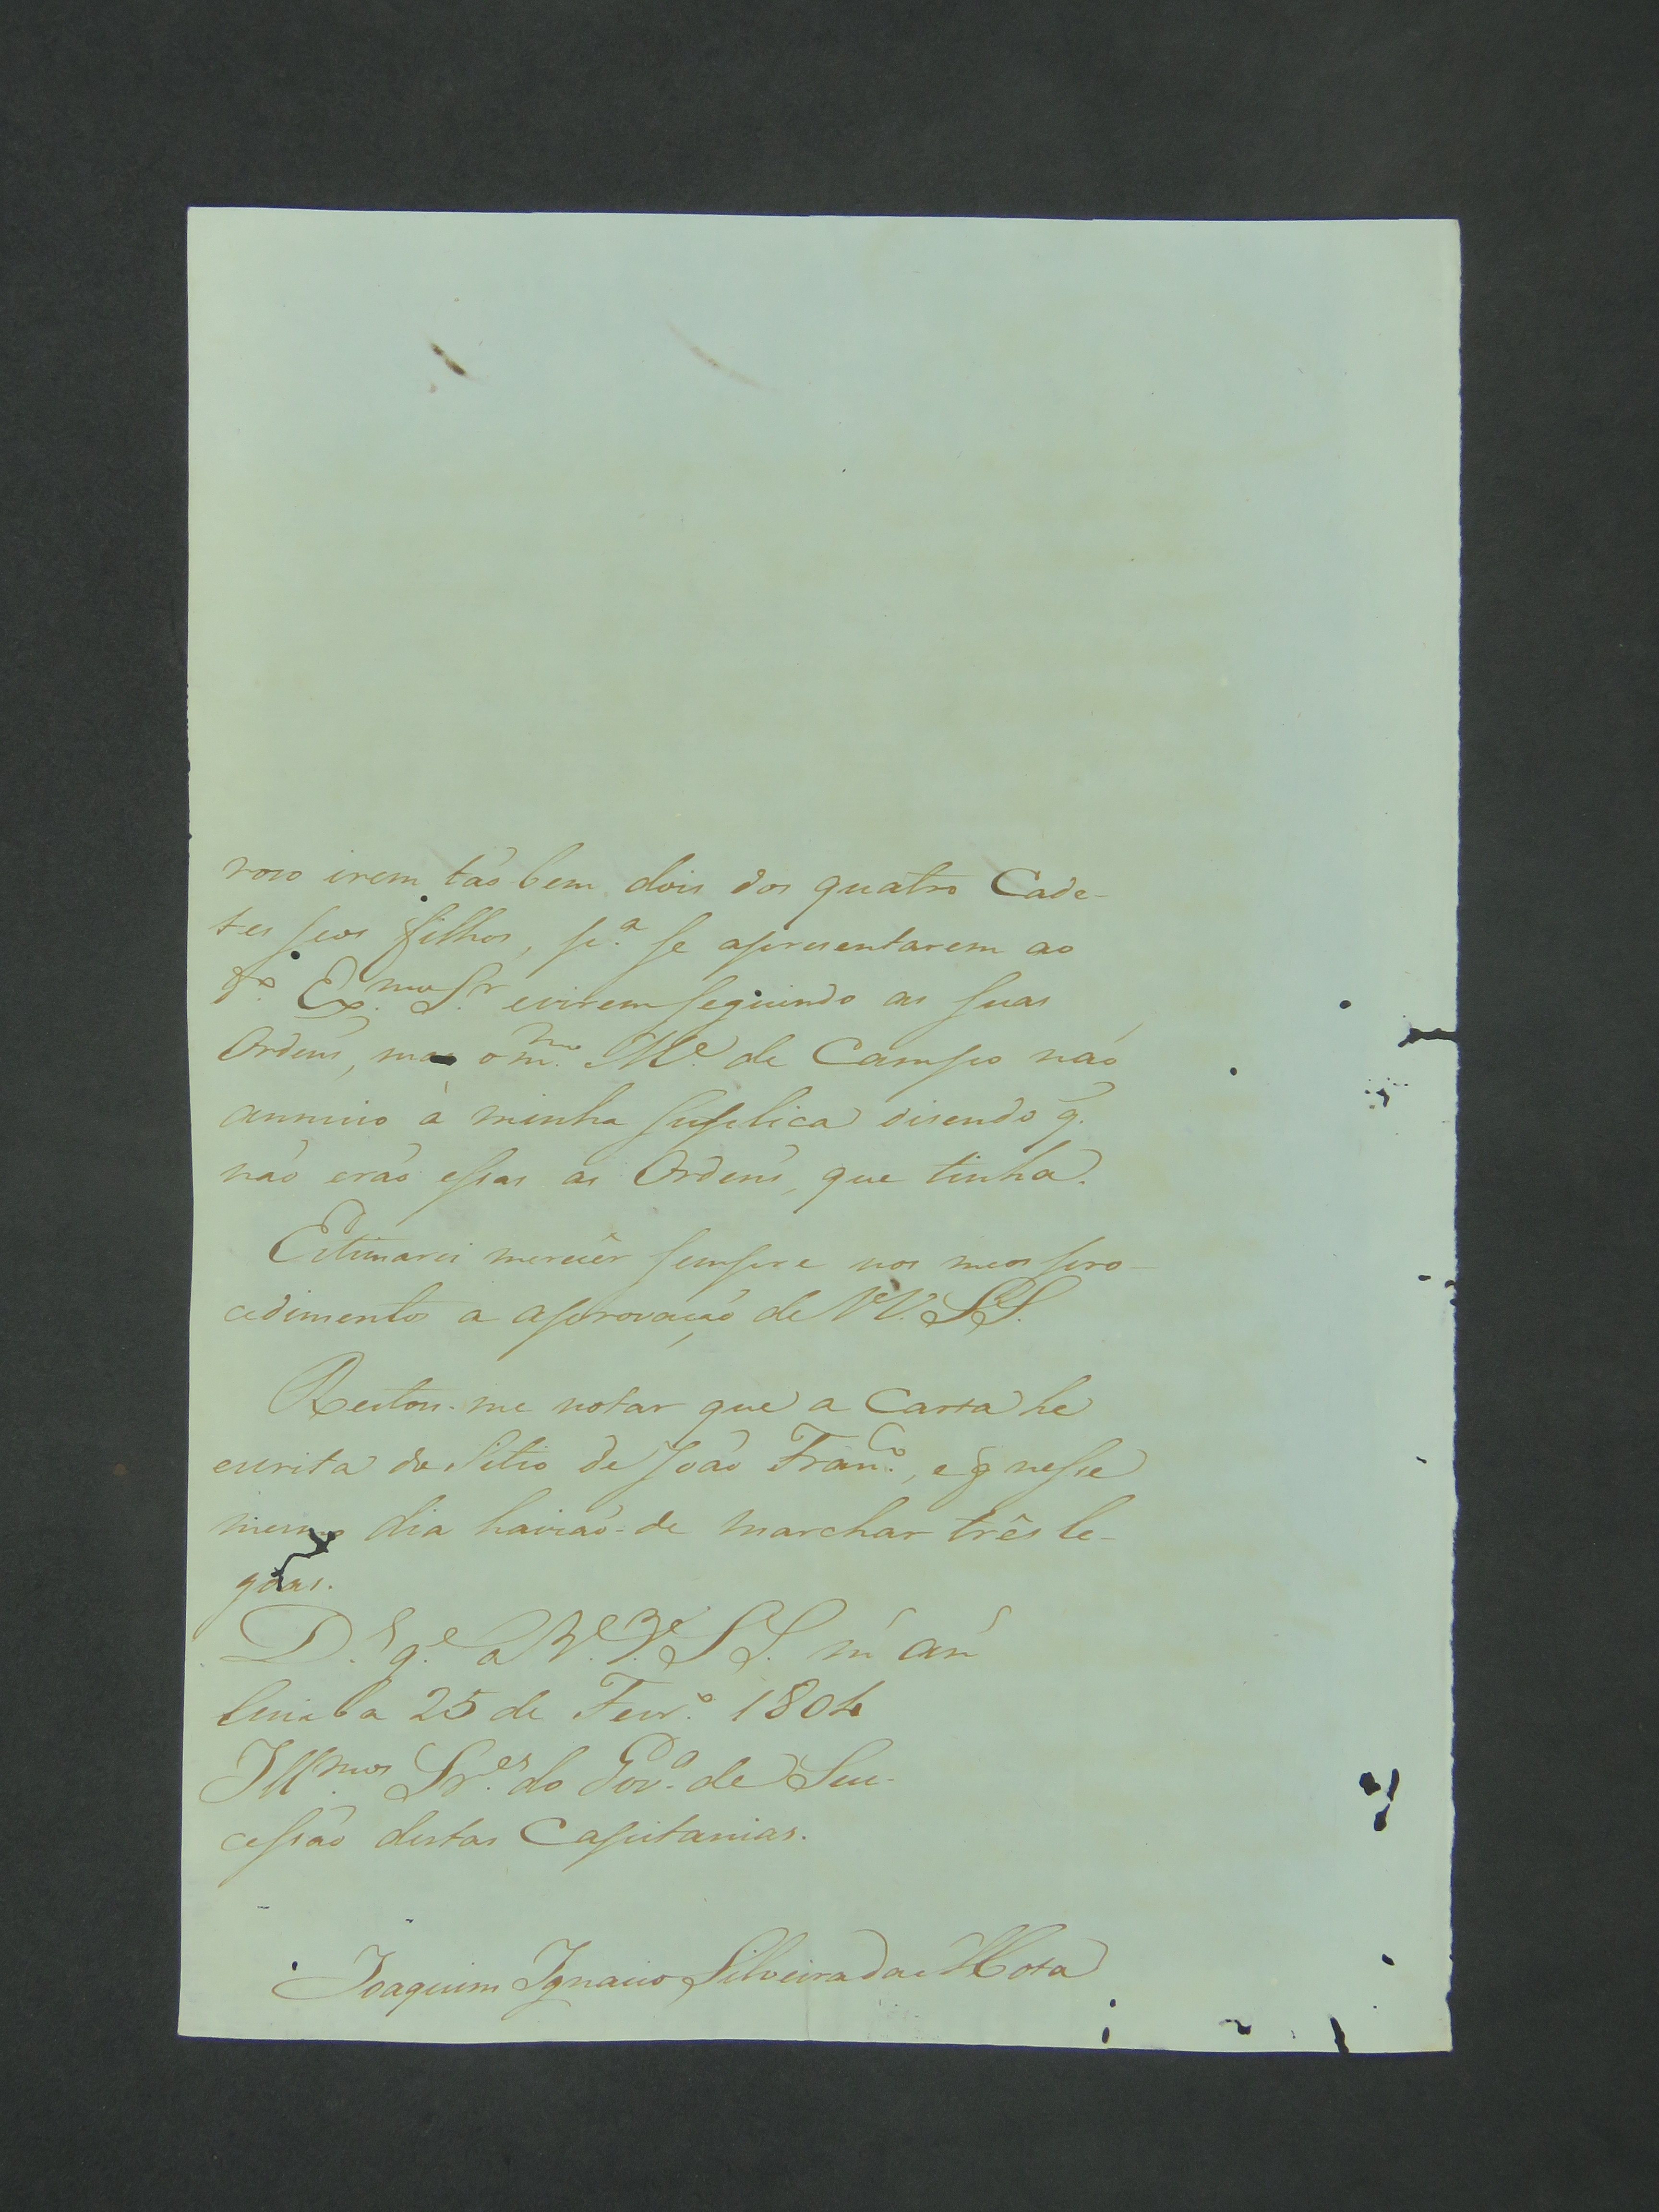 roso irem táo bem dois dos quatro Cade-
tes seos filhos, p.ª se apresentarem ao
Ex.mo Sr. evirem seguindo as suas
Ordens, mas o m.mo M.e de Campo náo
annuio á minha suplica disendo q̃.
náo eráo essas as Ordens, que tinha.
Estimarei merecêr sempre nos meos pro-
cedimentos a aprovaçáo de V.V. S.S.
Restou-me notar que a Carta he
escrita do Sitio de Joáo Fran.co, e q̃ nesse
mesmo dia haviáo-de marchar três le-
goas.
D.s g.e a V.V. S.S. m. an.
Cuiabá 25 de Fevr.º 1804
Ill.mos Sr.es do Gov.º de Suc-
cessáo destas Capitanias.
Joaquim Ignacio Silveira da Mota